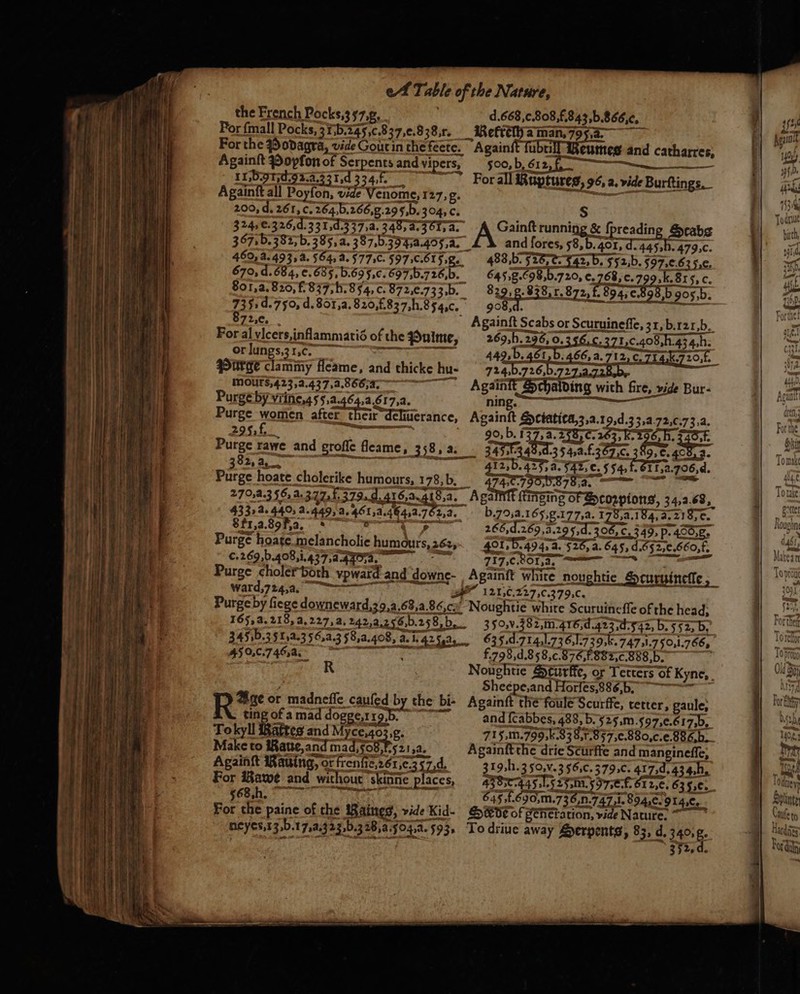 A Table of the Nature,
the French Pocks,357,g.
For small Pocks, 31,b.245,c.837,e.838,r.
For the Podagra, vide Gout in the feete.
Against Poyson of Serpents and vipers,
11,b.91,d.92.a.331,d 334,f.
Against all Poyson, vide Venome,127,g.
200, d. 261, c. 264,b.266,g.295,b.304, c.
324, e.326,d.331,d.337,a. 348,a.361,a.
367,b.382, b.385,a. 387,b.394,a.405,a.
460,a.493,a. 564, a. 577,c. 597,c.615,g.
670, d. 684, e. 685, b.695,c. 697,b.726,b.
801,a. 820, f. 837, h. 854, c. 872,e.733,b.
735,d.750, d. 801,a. 820,f.837,h.854,c.
872,e.
For al vlcers,inflammatiō of the Pulme,
or lungs,31,c.
Purge clammy fleame, and thicke hu-
mours,423,a.437,a,866,a.
Purge by vrine,455,a.464,a,617,a.
Purge women after their deliuerance,
295,f.
Purge rawe and grosse fleame, 358, a.
382, a.
Purge hoate cholerike humours, 178, b.
270,a.356, a. 377,f. 379,d.416,a.418,a.
433, a. 440, a. 449, a. 461,a.464,a.762,a.
811,a.891,a.
Purge hoate melancholie humours, 262,
c.269,b.408,i.437,a.440,a.
Purge choler both vpward and downe-
ward,724,a.
Purge by siege downeward,39,a.68,a.86,c.
165, a. 218, a, 227, a, 242,a.256,b.258,b.
345,b.351,a.356,a.358,a.408, a. l. 425,a.
450,c.746,a.
R
RAge or madnesse caused by the bi-
ting of a mad dogge,119,b.
To kyll Rattes and Myce,403,g.
Make to Raue,and mad,508,f.521,a.
Against Rauing, or frensie,261,e.357,d.
For Rawe and without skinne places,
568,h.
For the paine of the Raines, vide Kid-
neyes,13,b.17,a.323,b.328,a.504,a. 593,
d.668,c.808,f.843,b.866,c.
Refresh a man, 795,a.
Against subtill Reumes and catharres,
500, b, 612, f.
For all Ruptures, 96, a. vide Burstings.
S
AGainst running & spreading Scabs
and sores, 58, b. 401, d. 445,h. 479,c.
488,b. 526, c. 542, b. 552,b. 597,e.635,e.
645,g.698,b.720, e, 768, c. 799,k.815, c.
829, g. 838, r. 872, f. 894, c.898,b 905,b.
908,d.
Against Scabs or Scuruinesse, 31, b.121,b.
269,h. 296, o.356,c.371,c.408,h.434,h.
449,b. 461,b.466,a. 712, c. 714,k.720,f.
724,b.726,b.727,a.728,b.
Against Schalding with fire, vide Bur-
ning.
Against Sciatica,3,a.19,d.33,a.72,c.73.a.
90, b. 137, a. 258, c. 263, k. 296, h. 340,f.
345,f.348,d.354,a.f.367,c. 389, e. 408,g.
412,b.425,a. 542, e. 554, f. 611,a.706,d.
474,c.790,b.878,a.
Against stinging of Scorpions, 34,a.68,
b.70,a.165,g.177,a. 178,a.184, a.218, e.
266,d.269,a.295,d. 306, c. 349, p.400,g.
401, b.494, a. 526, a. 645, d.652,e.660,f.
717,c.801,a.
Against white noughtie Scuruinesse,
121,c.227,c.379,c.
Noughtie white Scuruinesse of the head,
350,v.382,m.416,d.423,d.542, b. 552, b.
635.d.714,l.736,l.739,k.747,l.750,l.766,
f.798,d.858,c.876,f.882,c.888,b.
Noughtie Scurffe, or Tetters of Kyne,
Sheepe,and Horses,886,b.
Against the foule Scurffe, tetter, gaule,
and scabbes, 488, b. 525,m.597,e.617,b.
715,m.799,k.838,r.857,e.880,c.e.886,b.
Against the drie Scurffe and manginesse,
319,h.350,v.356,c.379,c. 417,d.434,h.
438,c.445,l.525,m.597,e.f. 612,e. 635,e.
645,f.690,m.736,n.747,l. 894,c. 914,c.
Seede of generation, vide Nature.
To driue away Serpents, 83, d. 340, g.
352,d.